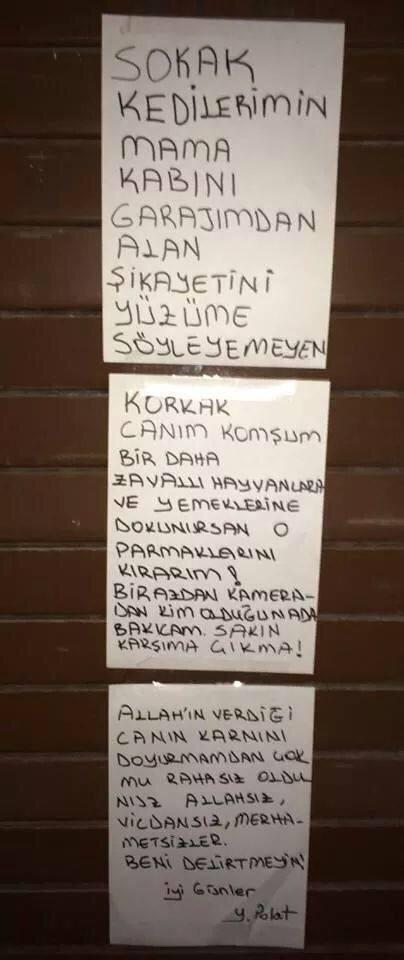 SOKAK
KEDİLERİMİN
MAMA
KABINI
GARAJIMDAN
ALAN
ŞİKAYETİNİ
YÜZÜME
SÖYLEYEMEYEN
KORKAK
CANIM KOMŞUM
BİR DAHA
ZAVALLI HAYVANLARA
VE YEMEKLERİNE
DOKUNURSAN O
PARMAKLARINI
KIRARIM!
BİRAZDAN KAMERA-
DAN KİM OLDUĞUNADA
BAKICAM. SAKIN
KARŞIMA ÇIKMA!
ALLAH'IN VERDİĞİ
CANIN KARNINI
DOYURMAMDAN ÇOK
MU RAHASIZ OLDU
NUZ ALLAHSIZ,
VİCDANSIZ, MERHA-
METSİZLER.
BENİ DELİRTMEYİN!
İyi Günler
Y. Polat